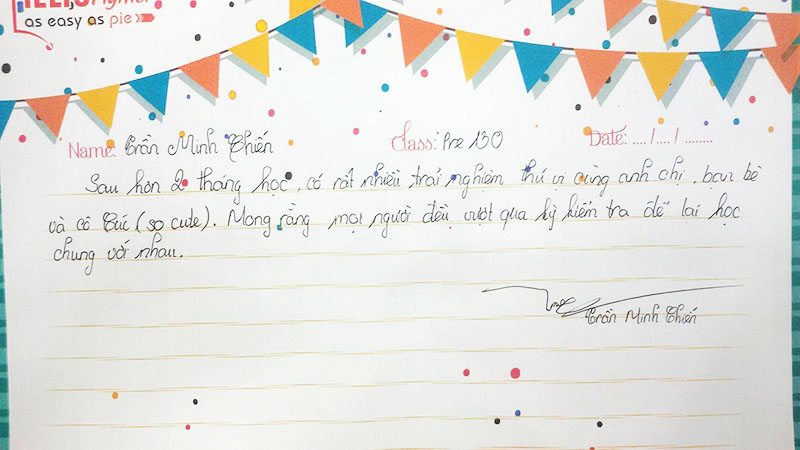 IELTS Fighter
as easy as pie
Name: Trần Minh Chiến Class: Pre 130 Date: ..../..../........
Sau hơn 2 tháng học, có rất nhiều trải nghiệm thú vị cùng anh chị, bạn bè
và cô Cúc (so cute). Mong rằng mọi người đều vượt qua kỳ kiểm tra để lại học
chung với nhau.
Trần Minh Chiến